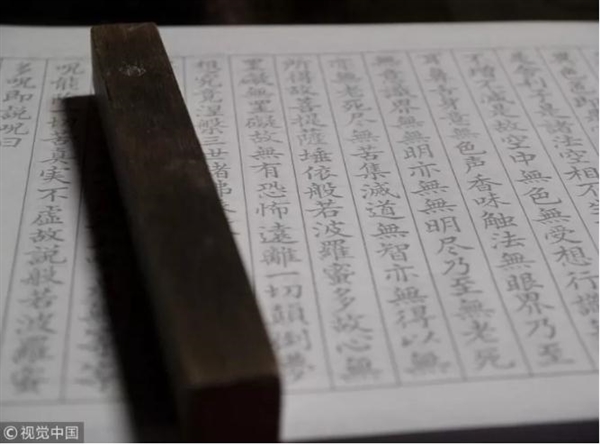 異色
是舍利子是諸法空相不生
不増不減是故空中無色無受想行識
耳鼻舌身意無色声香味触法無眼界乃至
無意識界無無明亦無無明尽乃至無老死
亦無老死尽無苦集滅道無智亦無得以無
所得故菩提薩埵依般若波羅蜜多故心無
罣礙無罣礙故無有恐怖遠離一切顛倒夢
想究竟涅槃三世諸佛
呪能切苦真実不虚故説般若波羅蜜
多呪即説呪曰
©视觉中国